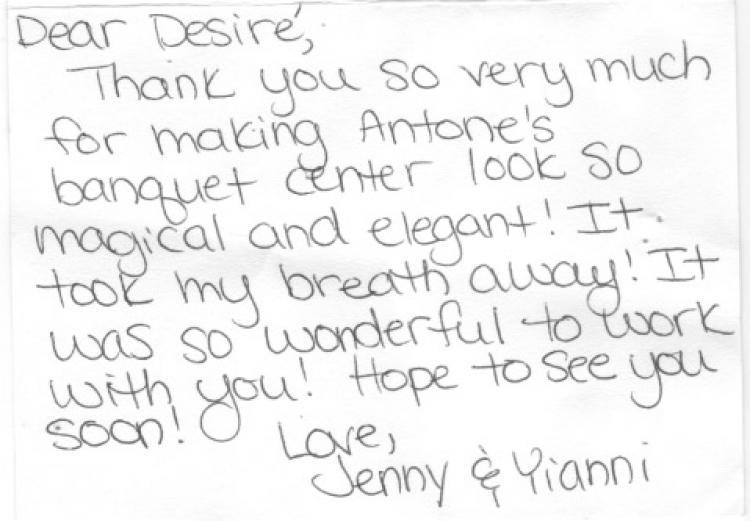 Dear Desiré,
Thank you so very much
for making Antone's
banquet center look so
magical and elegant! It
took my breath away! It
was so wonderful to work
with you! Hope to see you
soon!
Love,
Jenny & Yianni